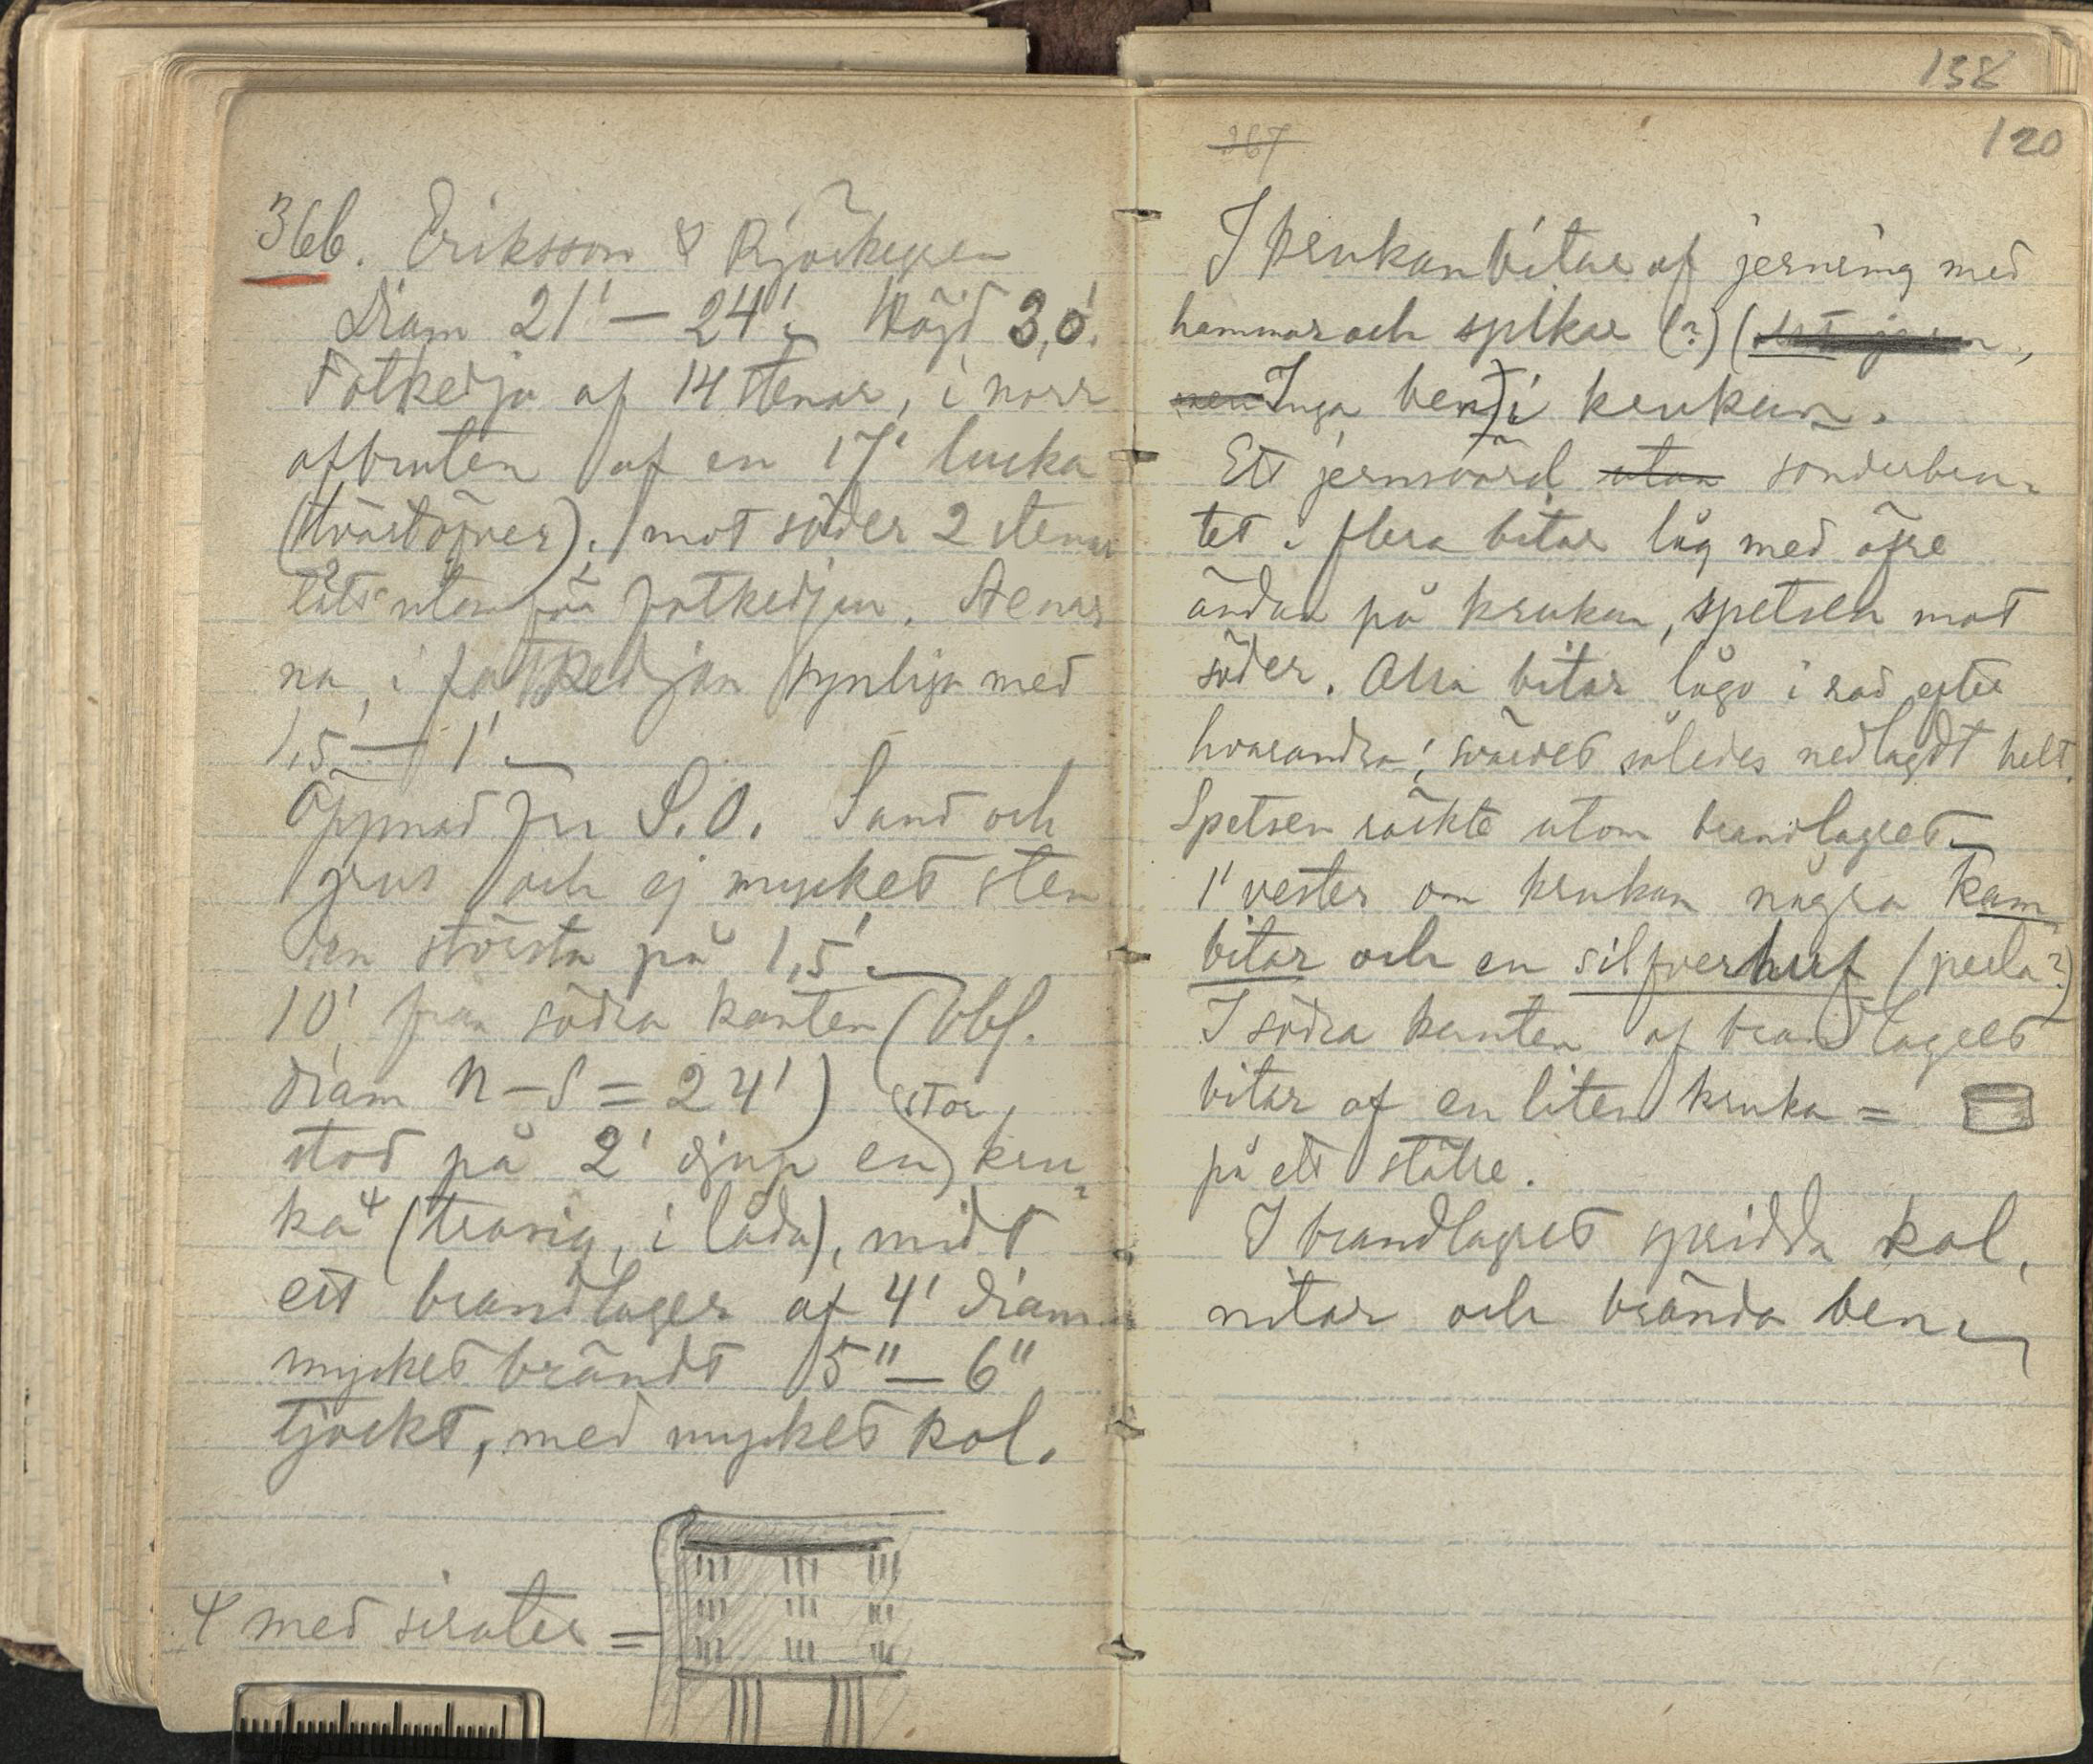 36b. Eriksson & Björkegren
Diam 21' — 24'. Höjd 3,0'.
Fotkedja af 14 stenar, i norr
afbruten af en 17' lucka
(tvärtöfver), mot söder 2 stenar
tätt utanför fotkedjan. Stenar
na i fotkedjan synliga med
1,5 — 1'.
Öppnad fr S.O. Sand och
grus och ej mycket sten
den största på 1,5'.
10' från södra kanten (obs.
diam N – S = 24') stor
stod på 2' djup en kru
ka (trasig, i låda), midt
ett brandlager af 4' diam
mycket brändt 5" — 6"
tjockt, med mycket kol.
med sirater =
138
120
267
I krukan bitar af jernring med
hammar och spikar (?) (
Inga ben) i krukan.
Ett jernsvärd utan sönderbru-
tet i flera bitar låg med öfre
ändan på krukan, spetsen mot
söder. Alla bitar lågo i rad efter
hvarandra; svärdet således nedlagdt helt.
Spetsen räckte utom brandlagret
1' vester om krukan några kam
bitar och en silfverhuf (perla?)
I södra kanten af brandlagret
bitar af en liten kruka =
på ett ställe.
I brandlagret spridda kol,
nitar och brända ben